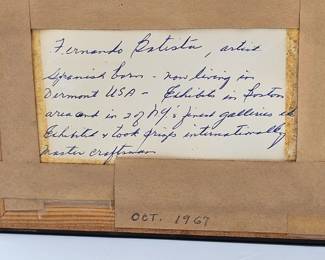 Fernando Batista, artist
Spanish born - now living in
Vermont USA - Exhibits in Boston
area and in 2 of NY's finest galleries
Exhibited & took prizes internationally
Master craftsman
OCT. 1967